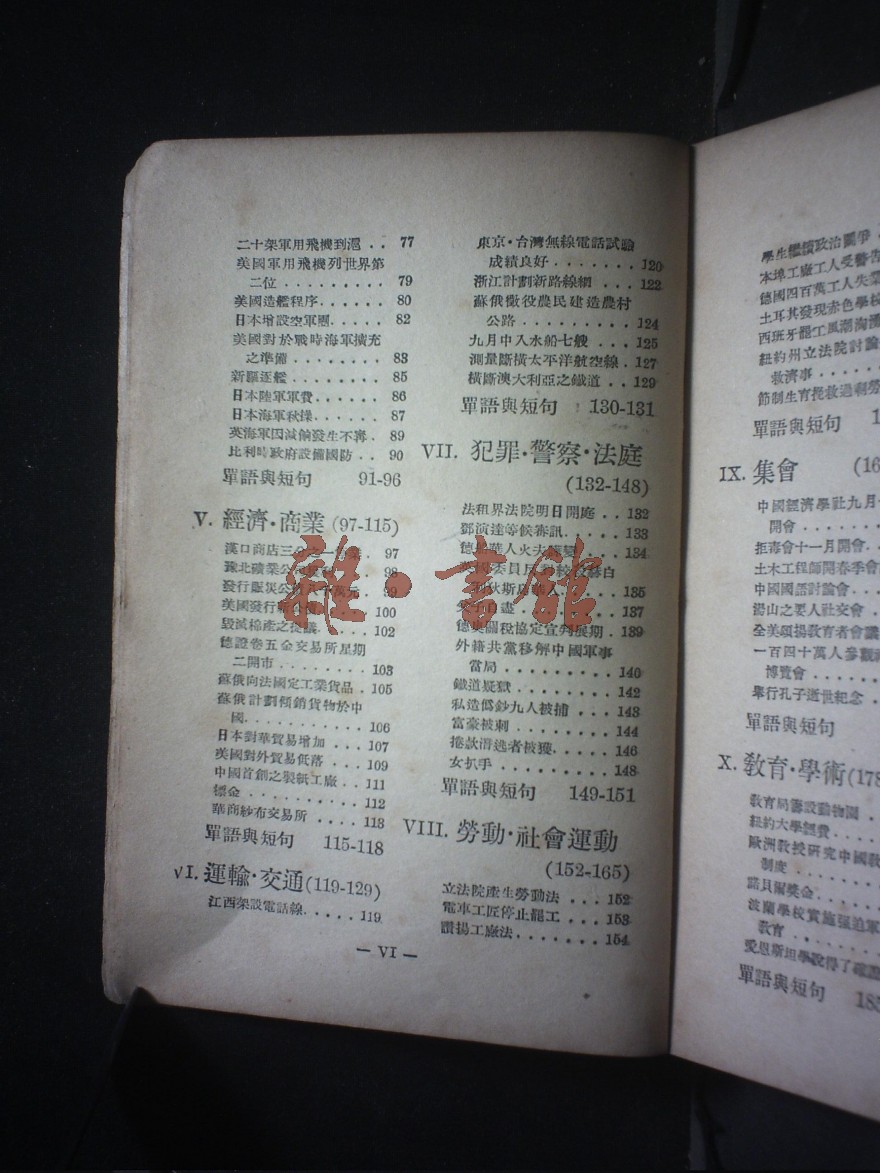 二十架軍用飛機到滬 . . 77
美國軍用飛機列世界第
二位 . . . . . . . . . 79
美國造艦程序 . . . . . . 80
日本增設空軍團 . . . . . 82
美國對於戰時海軍擴充
之準備 . . . . . . . . 83
新驅逐艦 . . . . . . . . 85
日本陸軍軍費 . . . . . . 86
日本海軍秋操 . . . . . . 87
英海軍因減餉發生不寗 . 89
比利時政府設備國防 . . 90
單語與短句 91-96
V. 經濟·商業 (97-115)
漢口商店三 . 97
豫北礦業公 98
發行賑災公 元 . 99
美國發行 100
毀滅棉產之提議 . . . . 102
德證卷五金交易所星期
二開市 . . . . . . . . 103
蘇俄向法國定工業貨品 . 105
蘇俄計劃傾銷貨物於中
國 . . . . . . . . . . 106
日本對華貿易增加 . . . 107
美國對外貿易低落 . . . 109
中國首創之製紙工廠 . . 111
標金 . . . . . . . . . . 112
華商紗布交易所 . . . . 113
單語與短句 115-118
VI. 運輸·交通 (119-129)
江西架設電話線 . . . . . 119
東京·台灣無線電話試驗
成績良好 . . . . . . . 120
浙江計劃新路線網 . . . 122
蘇俄徵役農民建造農村
公路 . . . . . . . . . 124
九月中入水船七艘 . . . 125
測量斷橫太平洋航空線 . 127
橫斷澳大利亞之鐵道 . . 129
單語與短句 130-131
VII. 犯罪·警察·法庭
(132-148)
法租界法院明日開庭 . . 132
鄧演達等候審訊 . . . . . 133
德 華人火夫 . . . 134
英國委員 白
利狄斯 135
自盡 . . . . . . 137
德奧關稅協定宣判展期 . 139
外籍共黨移解中國軍事
當局 . . . . . . . . . 140
鐵道疑獄 . . . . . . . . 142
私造僞鈔九人被捕 . . . 143
富豪被刺 . . . . . . . . 144
捲款潛逃者被獲 . . . . . 146
女扒手 . . . . . . . . . 148
單語與短句 149-151
VIII. 勞動·社會運動
(152-165)
立法院產生勞動法 . . . 152
電車工匠停止罷工 . . . 153
讚揚工廠法 . . . . . . . 154
— VI —
學生繼續政治鬭爭
本埠工廠工人受警告
德國四百萬工人失業
土耳其發現赤色學校
西班牙罷工風潮洶湧
紐約州立法院討論
救濟事 . . . . .
節制生育挽救過剩勞
單語與短句 1
IX. 集會 (16
中國經濟學社九月
開會 . . . . . .
拒毒會十一月開會 . . .
土木工程師開春季會
中國國語討論會 . . . .
湯山之要人社交會 . .
全美頌揚教育者會議
一百四十萬人參觀
博覽會 . . . . .
舉行孔子逝世紀念 . .
單語與短句
X. 教育·學術 (178
教育局籌設動物園 .
紐約大學經費 . . . .
歐洲教授研究中國教
制度 . . . . . .
諾貝爾獎金 . . . .
波蘭學校實施强迫軍
教育 . . . . . .
愛恩斯坦學說得了確證
單語與短句 183
雜·書館